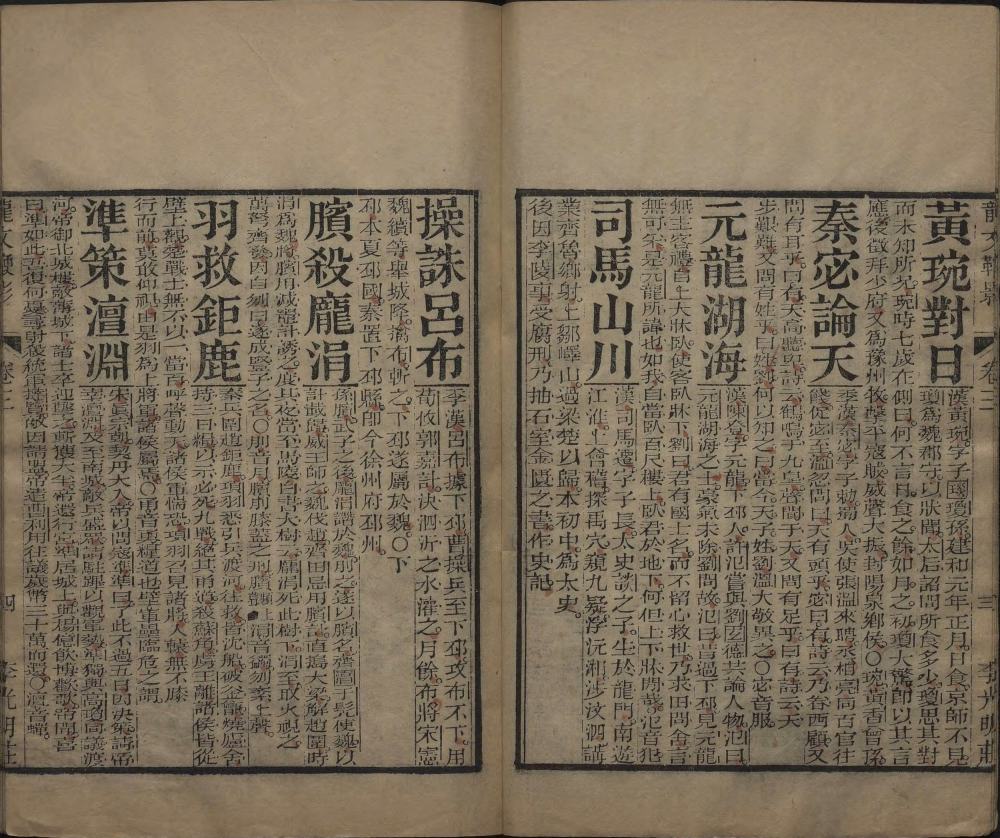 龍文鞭影 卷三 三 李光明莊
黃琬對日
漢黃琬字子國瓊孫建和元年正月日食京師不見
瓊為魏郡守以狀聞太后詔問所食多少瓊思其對
而未知所況琬時七歲在側曰何不言日食之餘如月之初瓊大驚即以其言
應後徵拜少府又為豫州牧擊平寇賊威聲大振封陽泉鄉侯○琬黃香曾孫
秦宓論天
季漢秦宓字子勅吳使張溫來聘丞相亮同百官往
餞促宓至溫忽問曰天有頭乎宓曰有詩云乃眷西顧又
問有耳乎曰有天高聽卑詩云鶴鳴于九皋聲聞于天又問有足乎曰有詩云天
步艱難又問有姓乎曰姓劉何以知之曰當今天子姓劉溫大敬異之○宓音服
元龍湖海
漢陳登字元龍下邳人許汜嘗與劉玄德共論人物汜曰
元龍湖海之士豪氣未除劉問故汜曰昔過下邳見元龍
無主客禮自上大牀臥使客臥牀下劉曰君有國士名而不留心救世乃求田問舍言
無可采是元龍所諱也如我自當臥百尺樓上臥君於地下何但上下牀間哉汜音犯
司馬山川
漢司馬遷字子長太史談之子生於龍門南遊
江淮上會稽探禹穴窺九疑浮沅湘涉汶泗講
業齊魯鄉射上鄒嶧山過梁楚以歸本初中為太史
後因李陵事受腐刑乃抽石室金匱之書作史記
操誅呂布
季漢呂布據下邳曹操兵至下邳攻布不下用
荀攸郭嘉計決泗沂之水灌之月餘布將宋憲
魏續等舉城降擒布斬之下邳遂屬於魏○下
邳本夏邳國秦置下邳縣即今徐州府邳州
臏殺龐涓
孫臏武子之後龐涓譖於魏刖之遂以臏名齊置于髡使魏以
計載歸威王師之魏伐趙齊田忌用臏計直搗大梁解趙圍時
涓為魏將臏用減竈計誘之度其夜當至馬陵白書大樹云龐涓死此樹下涓至取火視之
萬弩齊發因自剄曰遂成豎子之名○刖音月臏刖膝蓋之刑
羽救鉅鹿
秦兵圍趙鉅鹿項羽悉引兵渡河往救皆沈船破釜甑燒廬舍
持三日糧以示必死九戰絕其甬道殺蘇角虜王離諸侯皆從
壁上觀楚戰士無不以一當百呼聲動天諸侯軍惴恐項羽召見諸將入轅無不膝
行而前莫敢仰視由是羽為上將軍諸侯屬焉○甬音勇糧道也壁軍壘臨危之謂
準策澶淵
宋真宗朝契丹大入帝以問寇準準曰了此不過五日因決策請帝
幸澶淵及至南城敵兵盛眾請駐蹕以觀軍勢準獨與高瓊固議渡
河帝御北城樓敵薄城下諸士卒迎擊之斬獲大半帝還行宮準居城上與楊億飲博歡歌帝聞喜
曰準如此吾復何憂尋射殺統軍撻覽敵因請盟帝遣曹利用往議歲幣三十萬而還○澶音蟬
龍文鞭影 卷三 四 李光明莊